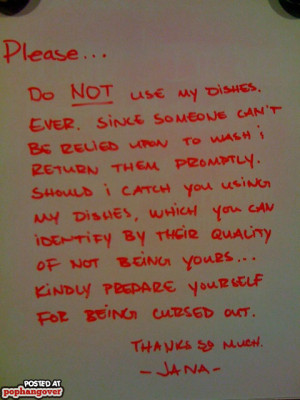 Please...
Do NOT use my dishes.
Ever. Since someone can't
be relied upon to wash &
return them promptly.
Should I catch you using
my dishes, which you can
identify by their quality
of not being yours...
Kindly prepare yourself
for being cursed out.
Thanks so much.
-Jana-
POSTED AT
pophangover